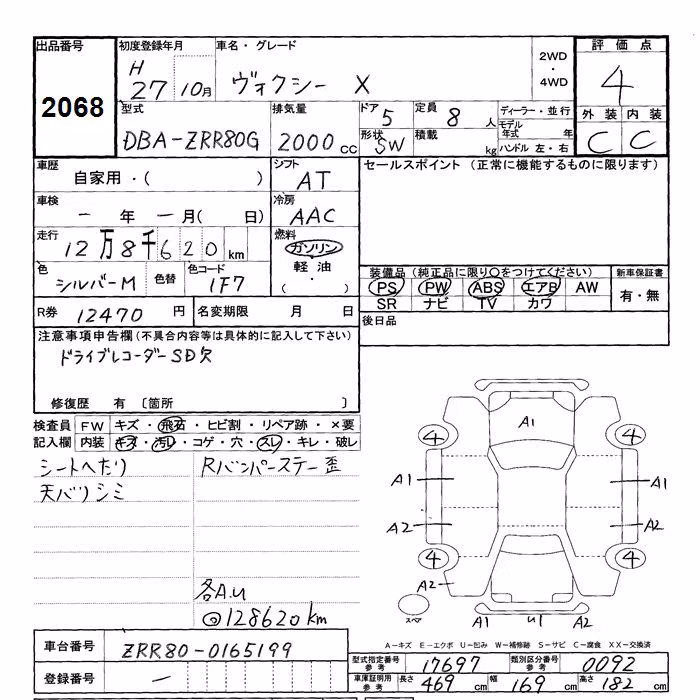 出品番号 2068
初度登録年月 H 27 10月
車名・グレード ヴォクシー X
2WD・4WD
評価点 4
外装 内装
C C
型式 DBA-ZRR80G
排気量 2000cc
ドア 5
定員 8人
形状 SW
積載 kg
ディーラー・並行
モデル年式 年
ハンドル 左・右
車歴 自家用・( )
シフト AT
セールスポイント (正常に機能するものに限ります)
車検 ー年ー月( 日)
冷房 AAC
走行 12万8千620km
燃料 ガソリン・軽油・( )
色 シルバーM 色替
色コード 1F7
装備品 (純正品に限り○をつけてください)
PS PW ABS エアB AW
SR ナビ TV カワ
新車保証書 有・無
R券 12470円
名変期限 月 日
後日品
注意事項申告欄(不具合内容等は具体的に記入して下さい)
ドライブレコーダーSD欠
修復歴 有 〔箇所 〕
検査員記入欄
FW キズ・飛石・ヒビ割・リペア跡・×要
内装 キズ・汚レ・コゲ・穴・スレ・キレ・破レ
シートへたり
天バリシミ
Rバンパーステー歪
各A.u
◎128620km
A1
4 4
A1 A1
A2 A2
4 4
A2
スペア
A1 U1 A2
A−キズ E−エクボ U−凹み W−補修跡 S−サビ C−腐食 XX−交換済
車台番号 ZRR80-0165199
登録番号 ー
型式指定番号参考 17697
類別区分番号参考 0092
車庫証明用参考 長さ 469cm 幅 169cm 高さ 182cm